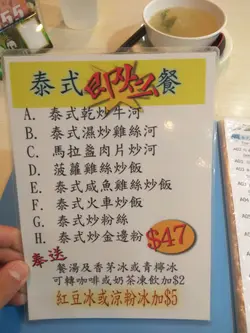 泰式即炒餐
A. 泰式乾炒牛河
B. 泰式濕炒雞絲河
C. 馬拉盞肉片炒河
D. 菠蘿雞絲炒飯
E. 泰式咸魚雞絲炒飯
F. 泰式火車炒飯
G. 泰式炒粉絲
H. 泰式炒金邊粉 $47
奉送
餐湯及香茅冰或青檸冰
可轉咖啡或奶茶凍飲加$2
紅豆冰或涼粉冰加$5